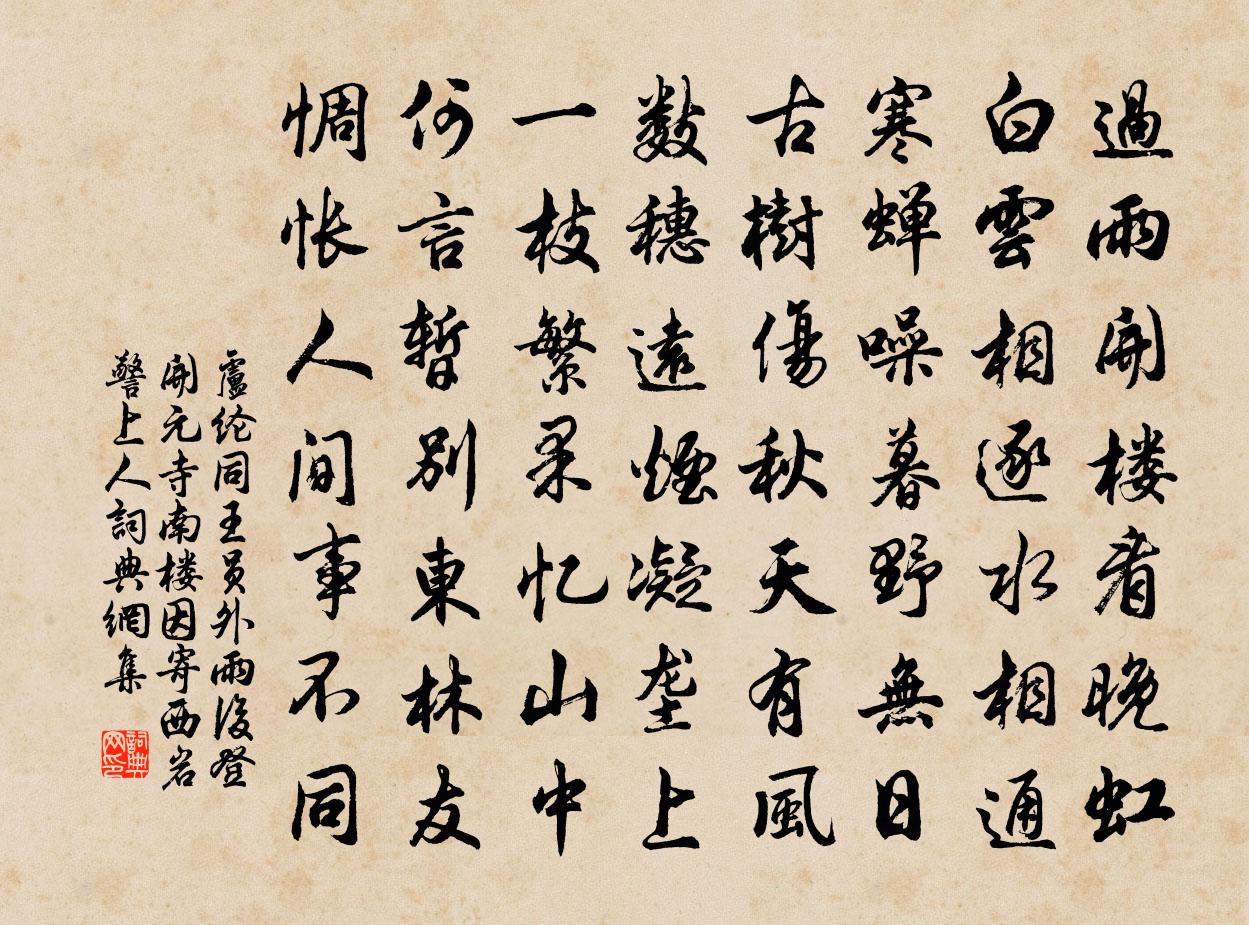 過雨開楼看晚虹
白雲相逐水相通
寒蝉噪暮野無日
古樹傷秋天有風
数穗遠煙凝垄上
一枝繁果忆山中
何言暫別東林友
惆怅人间事不同
盧纶同王员外雨後登
開元寺南楼因寄西岩
警上人詞典網集
詞典网印